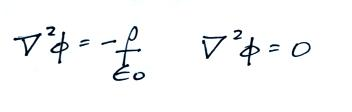 ∇²φ = -ρ/ε₀    ∇²φ = 0